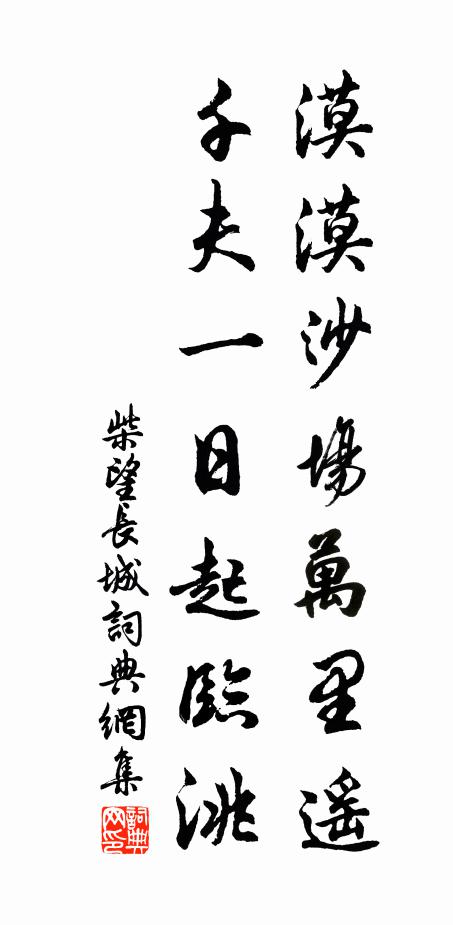 漠漠沙場萬里遥
千夫一日起臨洮
柴望長城詞典網集
詞典网印